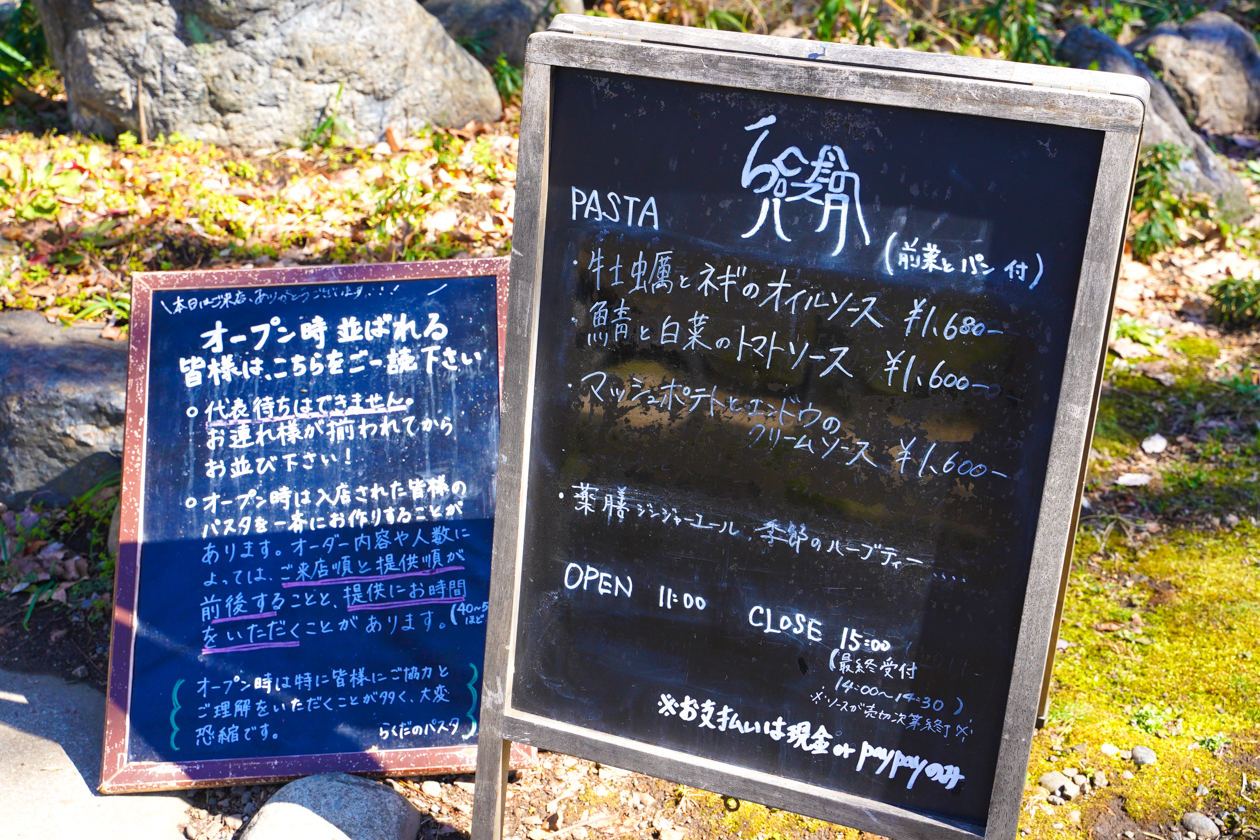 \本日はご来店、ありがとうございます...!
オープン時 並ばれる
皆様は、こちらをご一読下さい
○代表待ちはできません。
お連れ様が揃われてから
お並び下さい!
○オープン時は入店された皆様の
パスタを一斉にお作りすることが
あります。オーダー内容や人数に
よっては、ご来店順と提供順が
前後することと、提供にお時間
をいただくことがあります。(40~5
ほど
オープン時は特に皆様にご協力と
ご理解をいただくことが多く、大変
恐縮です。
らくだのパスタ
PASTA
(前菜とパン付)
・牡蠣とネギのオイルソース ¥1,680-
・鯖と白菜のトマトソース ¥1,600-
・マッシュポテトとエンドウの
クリームソース ¥1,600-
・薬膳ジンジャーエール、季節のハーブティー....
OPEN 11:00
CLOSE 15:00
(最終受付
14:00~14:30)
※ソースが売切次第終了※
※お支払いは現金or paypayのみ